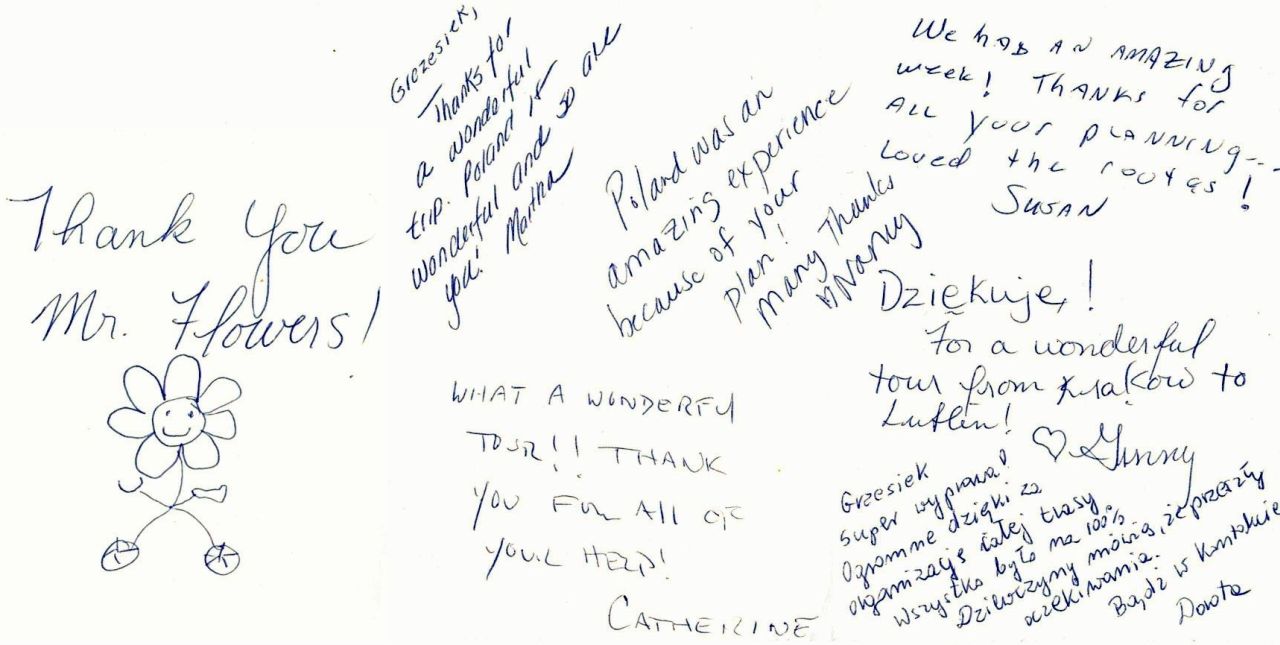 Thank you
Mr. Flowers!
Grzesiek,
Thanks for
a wonderful
trip. Poland is
wonderful and so are
you! Martha
Poland was an
amazing experience
because of your
plan!
Many Thanks
Nancy
We had an amazing
week! Thanks for
all your planning---
Loved the routes!
Susan
Dziękuję!
For a wonderful
tour from Krakow to
Lublin!
♡ Ginny
WHAT A WONDERFUL
TOUR!! THANK
YOU FOR All OF
YOUR HELP!
CATHERINE
Grzesiek
super wyprawa!
Ogromne dzięki za
organizację całej trasy
Wszystko było na 100%
Dziewczyny mówią, że przeszły
oczekiwania.
Bądź w kontakcie
Dorota